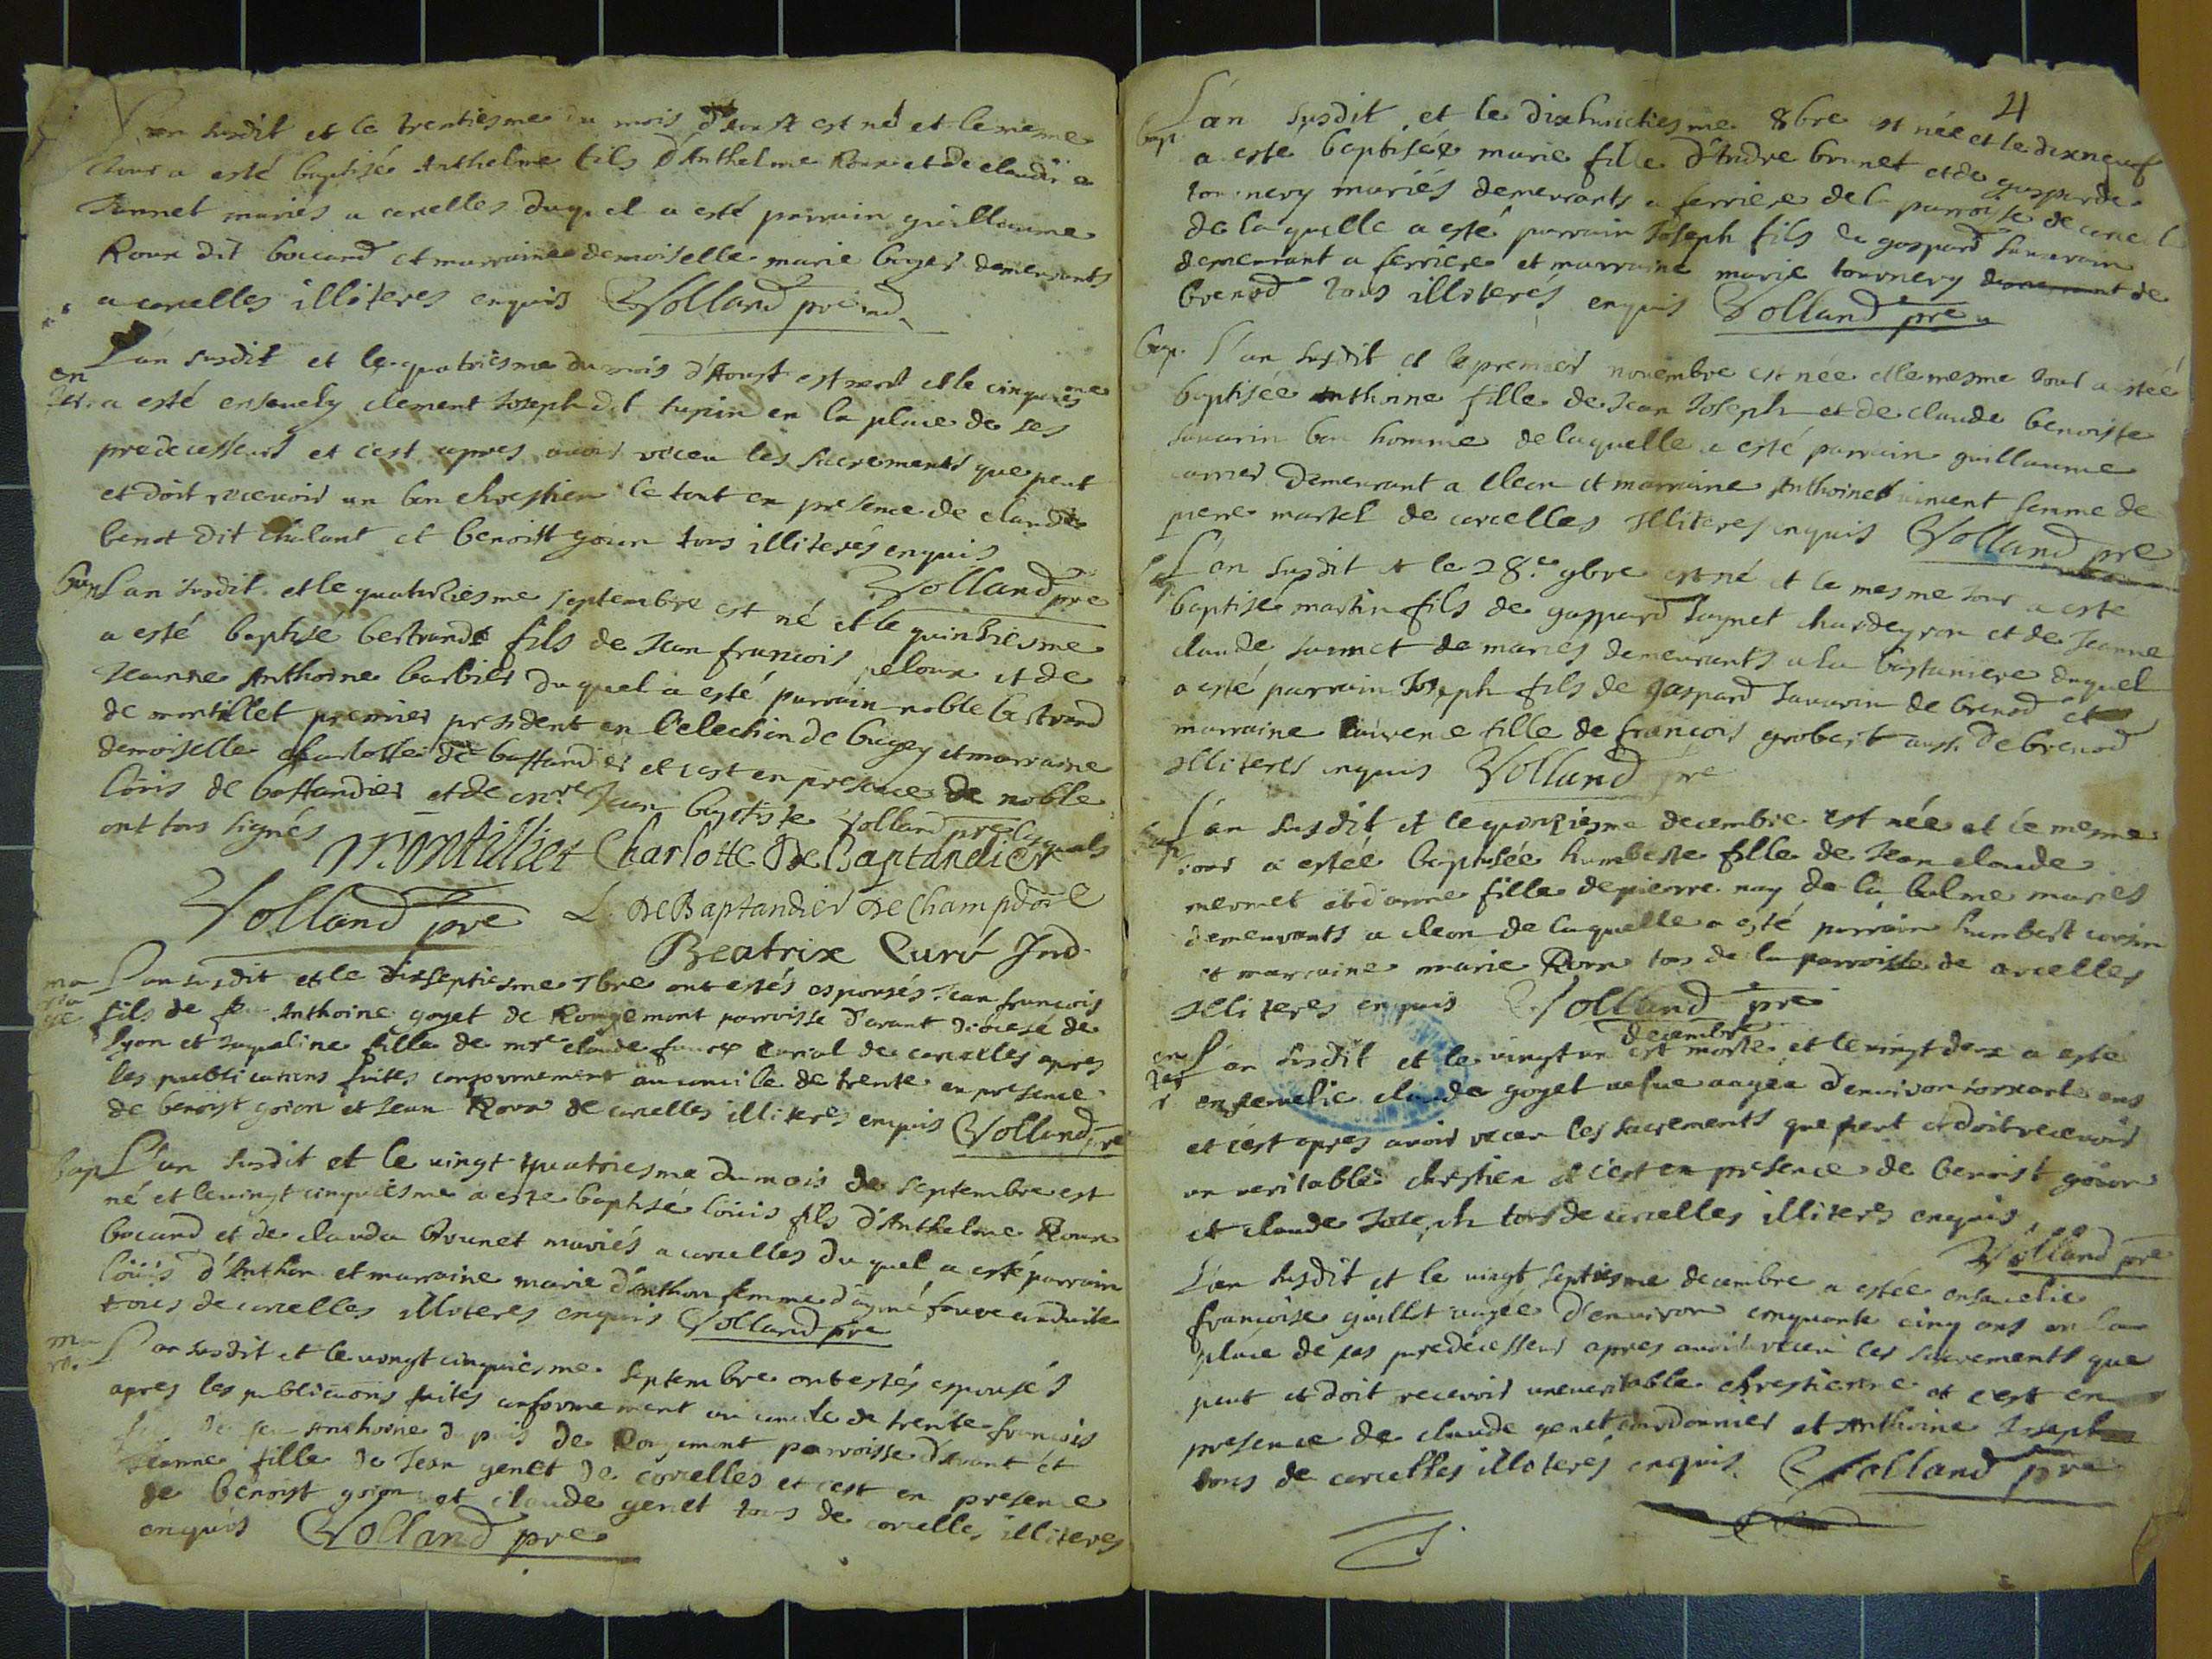 L'an susdit et le trentiesme du mois d'Aoust est né et le mesme
Jour a esté baptisé Anthelme fils d'Anthelme Roux et de claudia
Junnet mariés a corcelles duquel a esté parrain guillaume
Roux dit boccard et marraine demoiselle marie boyer demeurants
a corcelles illiteres enquis Volland pre ind.
L'an susdit et le quatriesme du mois d'Aoust est mort et le cinquiesme
en
ter. a esté ensevely clement Joseph dit tupin en la place de ses
predecesseurs et c'est apres avoir receu les sacrements que peut
et doit recevoir un bon chrestien le tout en presence de claude
benot dit chalant et benoist goion tous illiterés enquis
Volland pre
bap L'an susdit et le quatorziesme septembre est né et le quinziesme
a esté baptisé bertrand fils de Jean francois peloux et de
Jeanne Anthoine barbier duquel a esté parrain noble bertrand
de montillet premier president en l'election de bugey et marraine
demoiselle charlotte de bastandier et c'est en presence de noble
loüis de bastandier et de mre Jean baptiste Volland pre lesquels
ont tous signés
Montillet Charlotte De Baptandier
Volland pre L. De Baptandier De Champdore
Beatrix Curé Ind.
ma
ria
ge L'an susdit et le dixseptiesme 7bre ont estés espousés Jean francois
fils de feu Anthoine goyet de Rougemont parroisse d'arant diocese de
lyon et Jaqueline fille de mre claude favre curial de corcelles apres
les publications faites conformement au concile de trente en presence
de benoist goion et Jean Roux de corcelles illiteres enquis Volland pre
bap L'an susdit et le vingt quatriesme du mois de septembre est
né et le vingt cinquiesme a esté baptisé loüis fils d'Anthelme Roux
bocard et de clauda Brunet mariés a corcelles duquel a esté parrain
loüis d'Anthon et marraine marie d'Anthon femme d'aymé favre
tous de corcelles illiteres enquis Volland pre
ma
ria. L'an susdit et le vingt cinquiesme septembre ont estés espousés
apres les publications faites conformement au concile de trente francois
fils de feu Anthoine dupuis de Rougemont parroisse d'arant et
Jeanne fille de Jean genet de corcelles et c'est en presence
de benoist goion et claude genet tous de corcelles illiteres
enquis Volland pre
4
bap. L'an susdit et le dixhuictiesme 8bre est née et le dixneuf
a esté baptisée marie fille d'Andre brunet et de gasparde
tournery mariés demeurants a ferriere de la parroisse de corcelles
de laquelle a esté parrain Joseph fils de gaspard Savarin
demeurant a ferriere et marraine marie tournery demeurant de
brenod tous illiterés enquis Volland pre
bap. L'an susdit et le premier novembre est née et le mesme Jour a estéé
baptisée Anthoine fille de Jean Joseph et de claude benoiste
Savarin bon homme de laquelle a esté parrain guillaume
carrier demeurant a cleon et marraine Anthoinet vincent femme de
pierre martel de corcelles Illiteres enquis Volland pre
bap. L'an susdit et le 28.e 9bre est né et le mesme Jour a esté
baptisé martin fils de gaspard Juynet chardeyron et de Jeanne
claude Junnet de mariés demeurants a la bastaniere duquel
a esté parrain Joseph fils de gaspard Savarin de brenod et
marraine laurence fille de francois grobert aussi de brenod
Illiteres enquis Volland pre
bap L'an susdit et le quinziesme decembre est née et le mesme
Jour a estéé baptisée humberte fille de Jean claude
mermet et d'anne fille de pierre nay de la balme mariés
demeurants a cleon de laquelle a esté parrain humbert corsin
et marraine marie Roux tous de la parroisse de corcelles
Illiteres enquis Volland pre
decembre
en
ter
r L'an susdit et le vingt un est morte et le vingt deux a esté
ensevelie claude goyet vefve aagée d'environ soixante ans
et c'est apres avoir receu les sacrements que peut et doit recevoir
un veritable chrestien et c'est en presence de benoist goion
et claude Joseph tous de corcelles illiteres enquis
Volland pre
L'an susdit et le vingt septiesme decembre a estée ensevelie
francoise guillot aagée d'environ cinquante cinq ans en la
place de ses predecesseurs apres avoir receu les sacrements que
peut et doit recevoir une veritable chrestienne et c'est en
presence de claude genet cordonnier et Anthoine Joseph
tous de corcelles illiterés enquis Volland pre